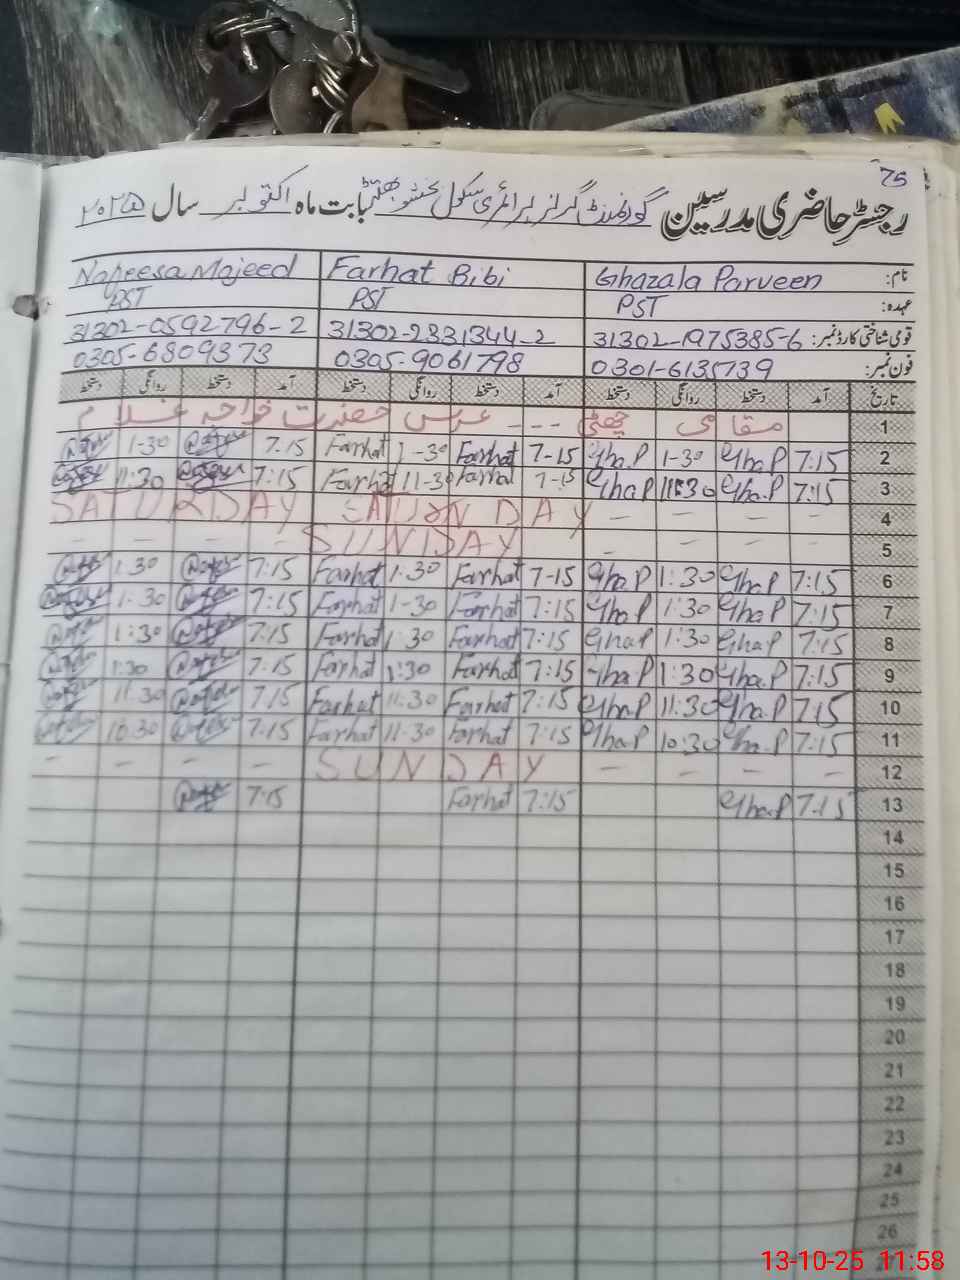 75
رجسٹر حاضری مدرسین گورنمنٹ گرلز پرائمری سکول بابت ماہ اکتوبر سال ۲۰۲۵
نام: Ghazala Parveen Farhat Bibi Nafeesa Majeed
عہدہ: PST PST PST
قومی شناختی کارڈ نمبر: 31302-1975385-6 31302-2331344-2 31302-0592796-2
فون نمبر: 0301-6135739 0305-9061798 0305-6809373
تاریخ آمد دستخط روانگی دستخط آمد دستخط روانگی دستخط آمد دستخط روانگی دستخط
1 مقامی چھٹی --- عرس حضرت خواجہ غلام
2 7:15 Gha.P 1-30 Gha.P 7-15 Farhat 1-30 Farhat 7.15 1-30
3 7:15 Gha.P 11:30 Gha.P 7-15 Farhat 11-30 Farhat 7:15 11:30
4 SATURDAY
5 SUNDAY
6 7:15 Gha.P 1:30 Gha.P 7-15 Farhat 1.30 Farhat 7:15 1.30
7 7:15 Gha.P 1:30 Gha.P 7:15 Farhat 1-30 Farhat 7:15 1:30
8 7:15 Gha.P 1:30 Gha.P 7:15 Farhat 1:30 Farhat 7:15 1:30
9 7:15 Gha.P 1:30 Gha.P 7:15 Farhat 1:30 Farhat 7:15 1:30
10 7:15 Gha.P 11:30 Gha.P 7:15 Farhat 11:30 Farhat 7.15 11:30
11 7:15 Gha.P 10:30 Gha.P 7:15 Farhat 11-30 Farhat 7:15 10:30
12 SUNDAY
13 7.15 Gha.P 7:15 Farhat 7:15
14
15
16
17
18
19
20
21
22
23
24
25
26
13-10-25 11:58